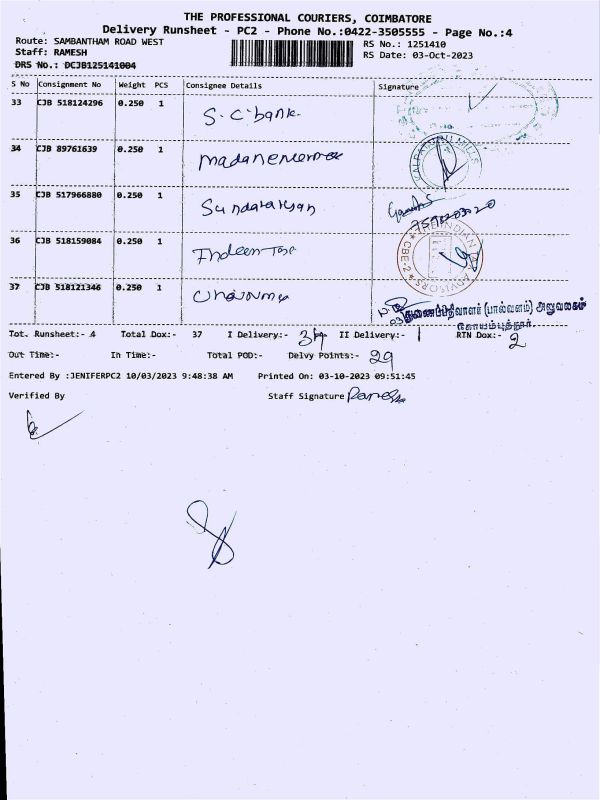 THE PROFESSIONAL COURIERS, COIMBATORE
Delivery Runsheet - PC2 - Phone No.:0422-3505555 - Page No.:4
Route: SAMBANTHAM ROAD WEST
RS No.: 1251410
Staff: RAMESH
RS Date: 03-Oct-2023
DRS No.: DCJB125141004
S No Consignment No Weight PCS Consignee Details Signature
33 CJB 518124296 0.250 1 S.C.bank
34 CJB 89761639 0.250 1
KALPATHARU MILLS
35 CJB 517966880 0.250 1
36 CJB 518159084 0.250 1
INDIAN TAX ADVISORS * CBE-2 *
37 CJB 518121346 0.250 1
துணைப்பதிவாளர் (பால்வளம்) அலுவலகம்
கோயம்புத்தூர்.
Tot. Runsheet:- 4 Total Dox:- 37 I Delivery:- 34 II Delivery:- 1 RTN Dox:- 2
Out Time:- In Time:- Total POD:- Delvy Points:- 29
Entered By :JENIFERPC2 10/03/2023 9:48:38 AM Printed On: 03-10-2023 09:51:45
Verified By Staff Signature Ramesh